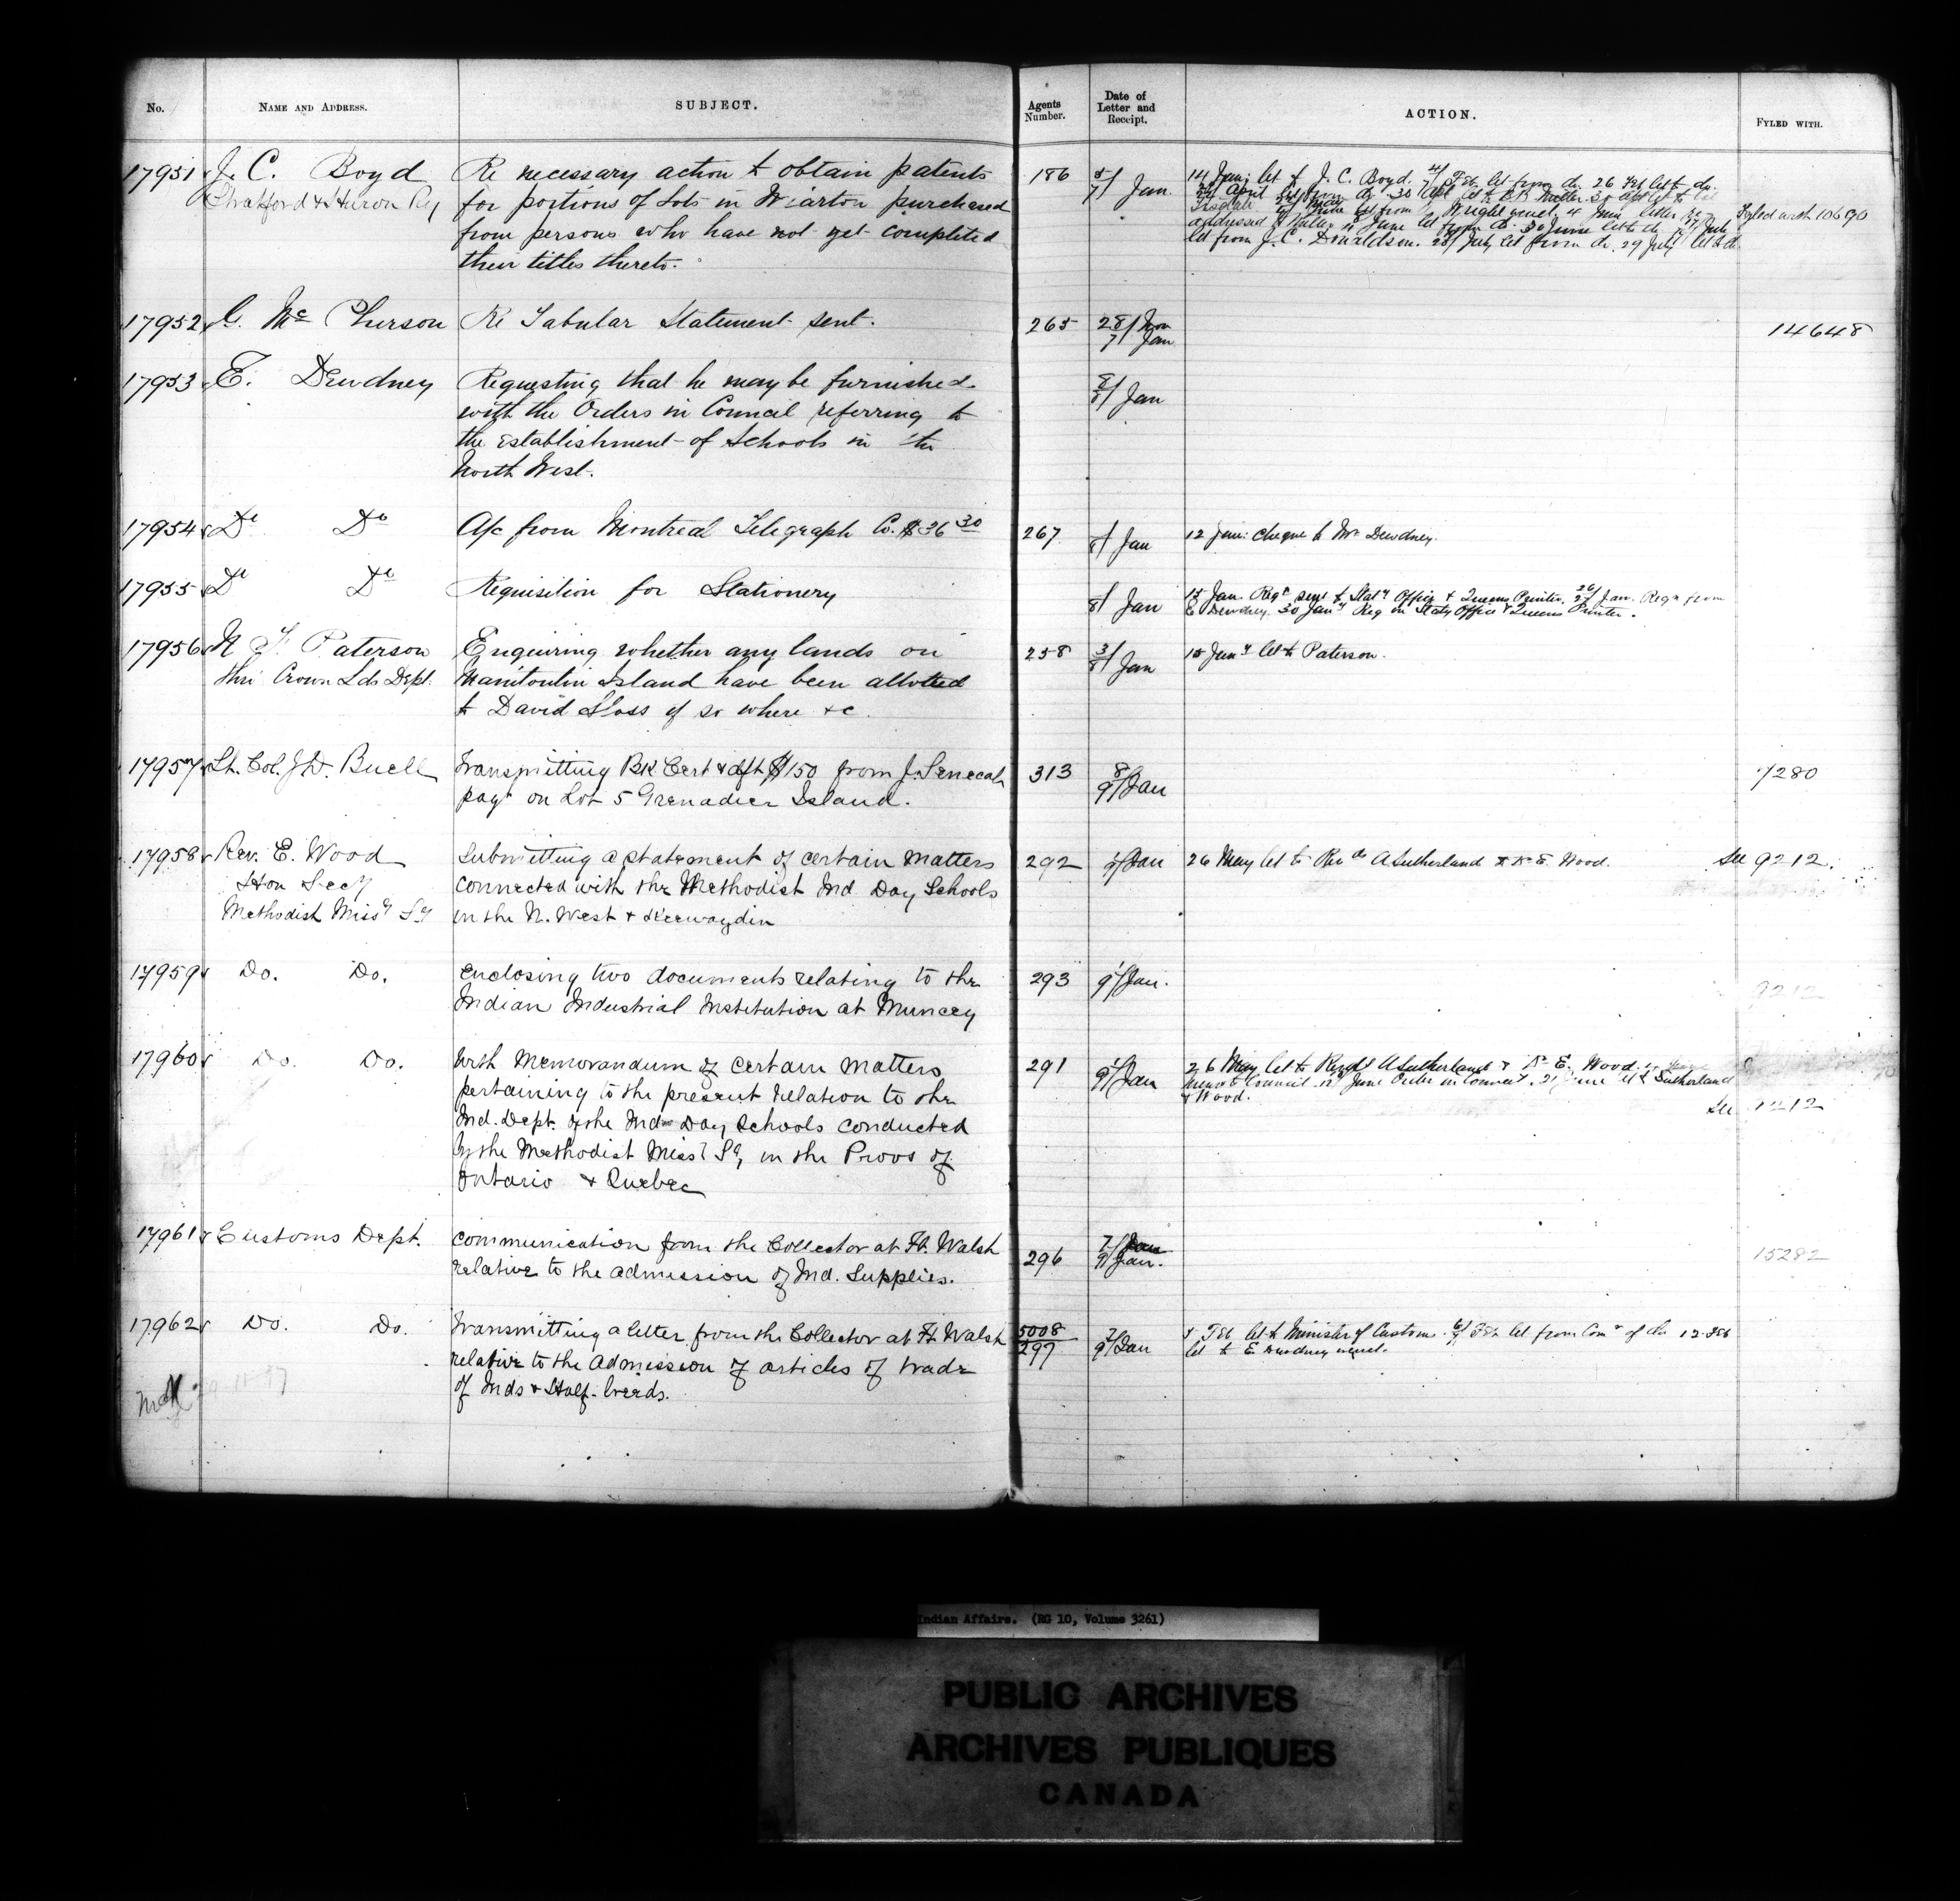 No. NAME AND ADDRESS. SUBJECT. Agents Number. Date of Letter and Receipt. ACTION. FYLED WITH.
17951 J. C. Boyd Re necessary action to obtain patents 186 5/7 Jan 14 Jan: let to J. C. Boyd. Feb let from do. 26 Feb let to do.
Stratford & Huron Ry for portions of Lots in Wiarton purchased April let from do 30 Apl let to Miller 30 Apl let to
from persons who have not yet completed Tisdale June let from Wright 4 June letter Fyled with 10690
their titles thereto. addressed June let from do. 30 June let to do July
let from J. C. Donaldson. 28 July let from do. 29 July let to do
17952 G. McPherson Re Tabular Statement sent. 265 28/Nov 14648
7 Jan
17953 E. Dewdney Requesting that he may be furnished 8/8 Jan
with the Orders in Council referring to
the establishment of Schools in the
North West.
17954 Do Do A/c from Montreal Telegraph Co. $36 30 267 /8 Jan 12 Jan: cheque to Mr Dewdney.
17955 Do Do Requisition for Stationery /8 Jan 15 Jan Reqn sent to Staty Office & Queens Printer. 26/27 Jan. Reqn from
E Dewdney. 30 Jany Req on Staty Office & Queens Printer.
17956 N. F. Paterson Enquiring whether any lands on 258 3/8 Jan 15 Jany let to Paterson.
thro Crown Lds Dept. Manitoulin Island have been allotted
to David Sloss if so where &c
17957 Lt. Col. J.D. Buell Transmitting Bk Cert & dft $150 from J. Senecal 313 8/9 Jan 7280
payt on Lot 5 Grenadier Island.
17958 Rev. E. Wood Submitting a statement of certain matters 292 Jan 26 May let to Revds A Sutherland & Dr E. Wood. See 9212.
Hon Secy connected with the Methodist Ind Day Schools
Methodist Missy Sy in the N. West & Keewaydin
17959 Do. Do. Enclosing two documents relating to the 293 1/9 Jan. 9212
Indian Industrial Institution at Muncey
17960 Do. Do. With Memorandum of certain matters 291 1/9 Jan 26 May let to Revds A Sutherland & Dr E. Wood.
pertaining to the present relation to the Memo to Council June Order in Council. 21 June let to Sutherland
Ind. Dept. of the Indn Day Schools conducted & Wood. See 9212
by the Methodist Missy Sy, in the Provs of
Ontario & Quebec
17961 Customs Dept. Communication from the Collector at Ft. Walsh 296 7/Jan 15282
relative to the admission of Ind. Supplies. 9/Jan.
17962 Do. Do. Transmitting a letter from the Collector at Ft Walsh 5008 7/9 Jan 5 Feb let to Minister of Customs. Feb let from Comr of do 12 Feb
relative to the Admission of articles of trade 297 let to E. Dewdney
of Inds & Half-breeds.
Indian Affairs. (RG 10, Volume 3261)
PUBLIC ARCHIVES
ARCHIVES PUBLIQUES
CANADA